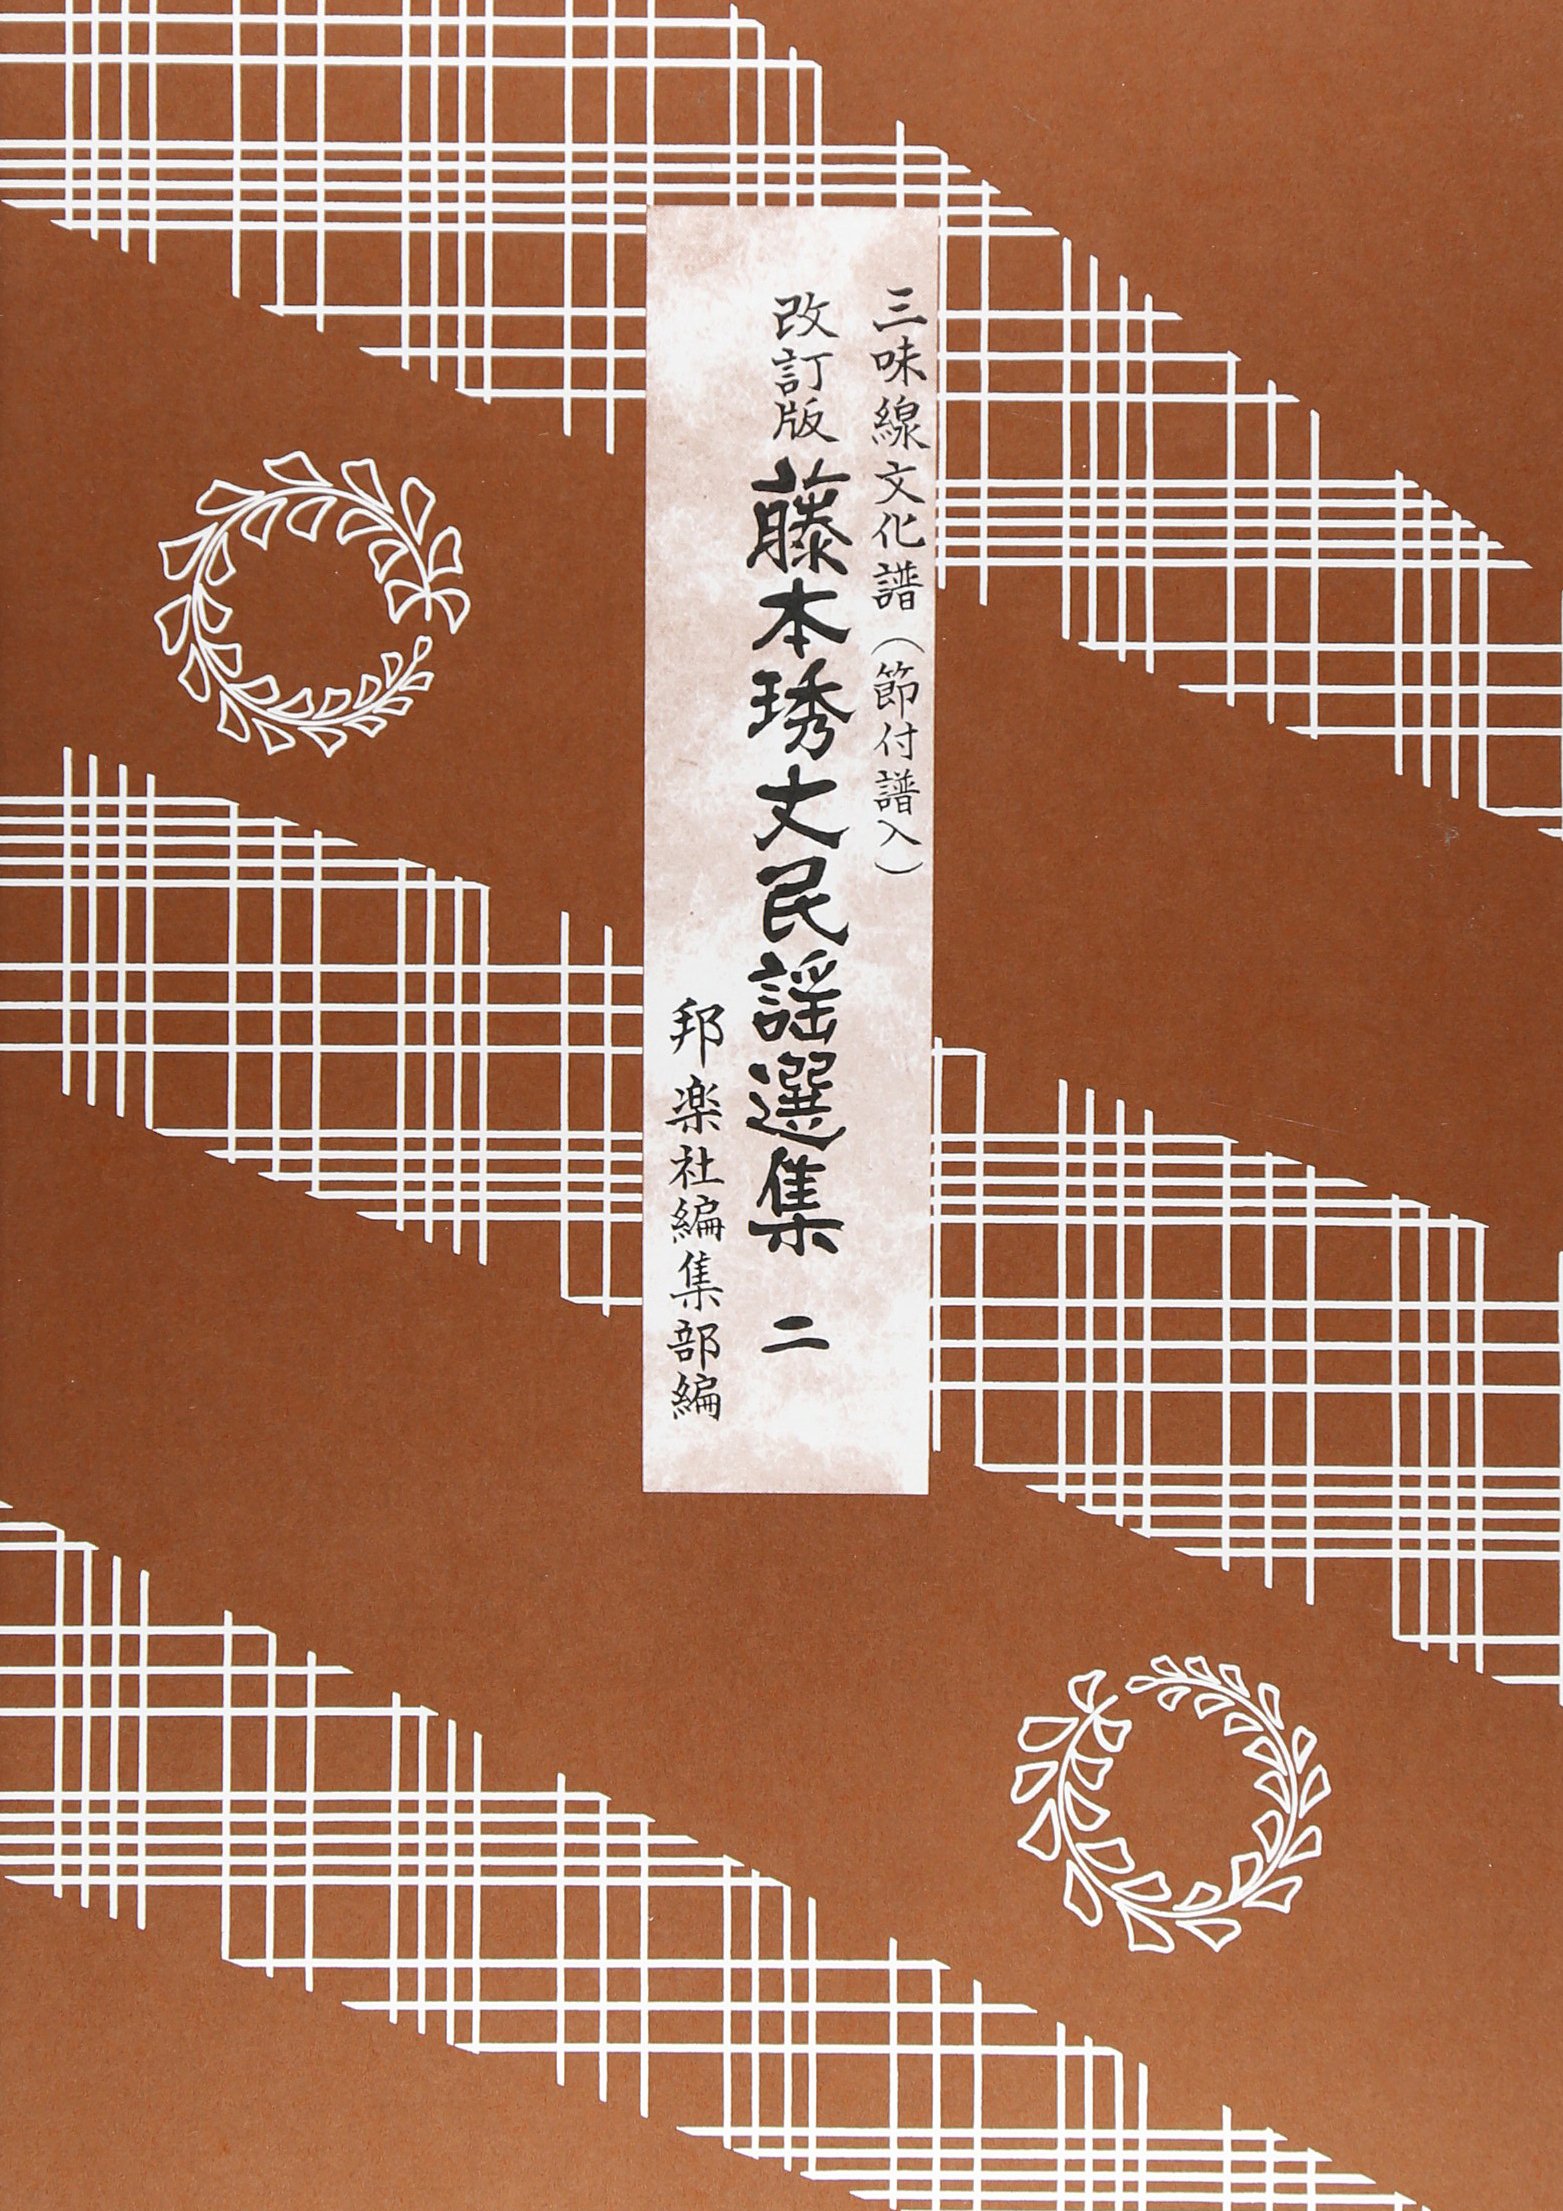 三味線文化譜（節付譜入）
改訂版 藤本琇丈民謡選集 二
邦楽社編集部編